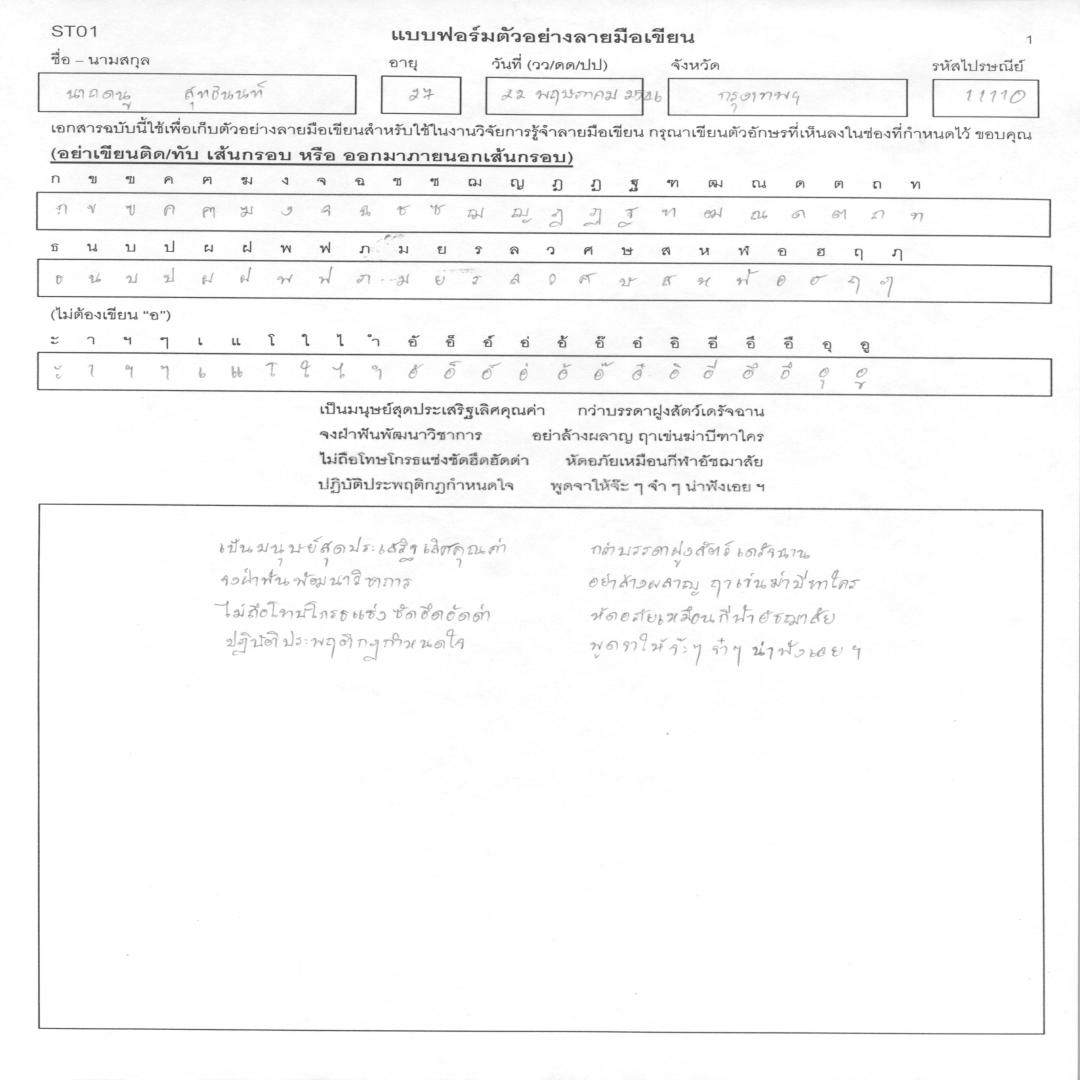 ST01 แบบฟอร์มตัวอย่างลายมือเขียน 1
ชื่อ – นามสกุล อายุ วันที่ (วว/ดด/ปป) จังหวัด รหัสไปรษณีย์
สุทธินนท์ 27 22 พฤษภาคม กรุงเทพฯ 11110
เอกสารฉบับนี้ใช้เพื่อเก็บตัวอย่างลายมือเขียนสำหรับใช้ในงานวิจัยการรู้จำลายมือเขียน กรุณาเขียนตัวอักษรที่เห็นลงในช่องที่กำหนดไว้ ขอบคุณ
(อย่าเขียนติด/ทับ เส้นกรอบ หรือ ออกมาภายนอกเส้นกรอบ)
ก ข ฃ ค ฅ ฆ ง จ ฉ ช ซ ฌ ญ ฎ ฏ ฐ ฑ ฒ ณ ด ต ถ ท
ก ข ฃ ค ฅ ฆ ง จ ฉ ช ซ ฌ ญ ฎ ฏ ฐ ฑ ฒ ณ ด ต ถ ท
ธ น บ ป ผ ฝ พ ฟ ภ ม ย ร ล ว ศ ษ ส ห ฬ อ ฮ ฤ ฦ
ธ น บ ป ผ ฝ พ ฟ ภ ม ย ร ล ว ศ ษ ส ห ฬ อ ฮ ฤ ฦ
(ไม่ต้องเขียน "อ")
ะ า ฯ ๆ เ แ โ ใ ไ ำ อั อ็ อ์ อ่ อ้ อ๊ อ๋ อิ อี อึ อื อุ อู
ะ า ฯ ๆ เ แ โ ใ ไ ำ อั อ็ อ์ อ่ อ้ อ๊ อ๋ อิ อี อึ อื อุ อู
เป็นมนุษย์สุดประเสริฐเลิศคุณค่า กว่าบรรดาฝูงสัตว์เดรัจฉาน
จงฝ่าฟันพัฒนาวิชาการ อย่าล้างผลาญ ฤาเข่นฆ่าบีฑาใคร
ไม่ถือโทษโกรธแช่งซัดฮึดฮัดด่า หัดอภัยเหมือนกีฬาอัชฌาสัย
ปฏิบัติประพฤติกฎกำหนดใจ พูดจาให้จ๊ะ ๆ จ๋า ๆ น่าฟังเอย ฯ
เป็นมนุษย์สุดประเสริฐเลิศคุณค่า กว่าบรรดาฝูงสัตว์เดรัจฉาน
จงฝ่าฟันพัฒนาวิชาการ อย่าล้างผลาญ ฤาเข่นฆ่าบีฑาใคร
ไม่ถือโทษโกรธแช่งซัดฮึดฮัดด่า หัดอภัยเหมือนกีฬาอัชฌาสัย
ปฏิบัติประพฤติกฎกำหนดใจ พูดจาให้จ๊ะๆ จ๋าๆ น่าฟังเอย ฯ